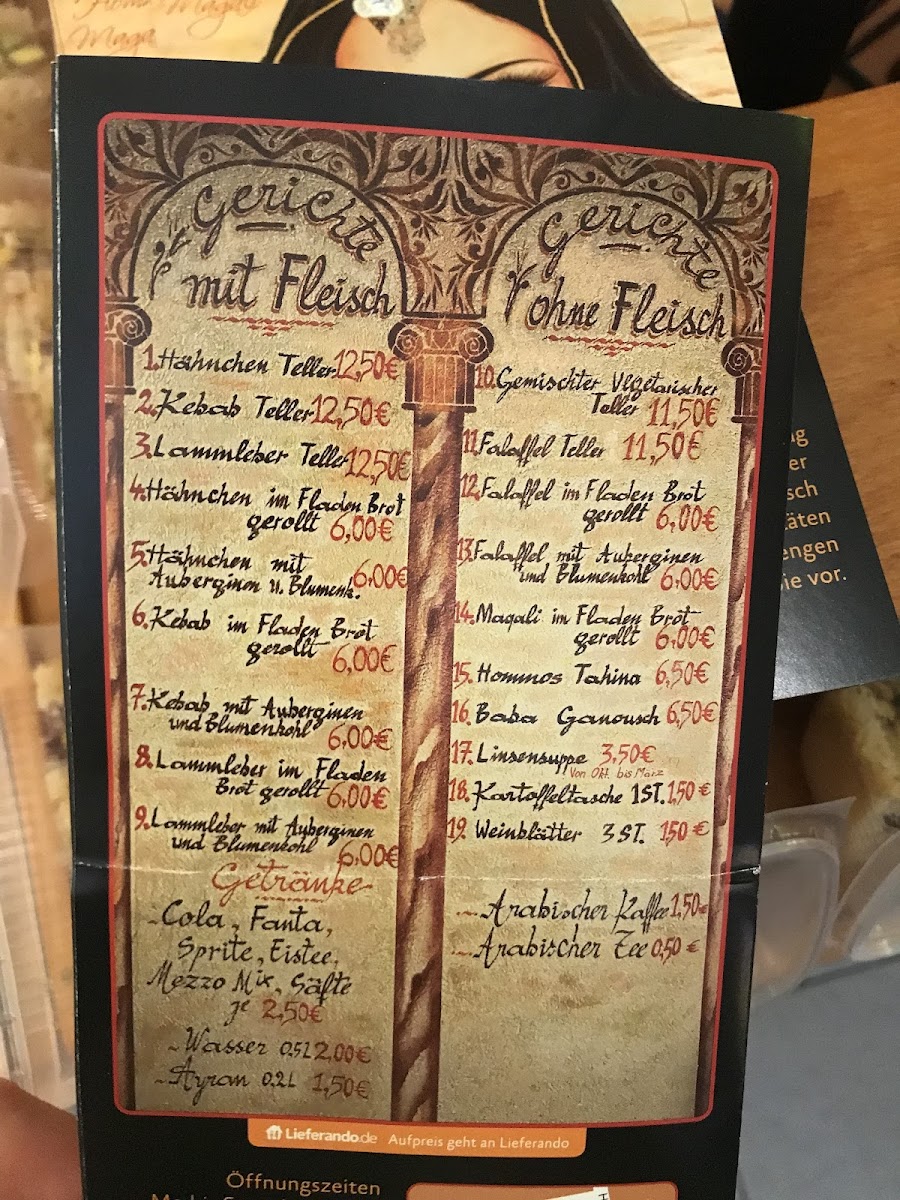 From Magali
Maga
Gerichte
mit Fleisch
1. Hähnchen Teller 12,50€
2. Kebab Teller 12,50€
3. Lammleber Teller 12,50€
4. Hähnchen im Fladen Brot
gerollt 6,00€
5. Hähnchen mit
Auberginen u. Blumenk. 6,00€
6. Kebab im Fladen Brot
gerollt 6,00€
7. Kebab mit Auberginen
und Blumenkohl 6,00€
8. Lammleber im Fladen
Brot gerollt 6,00€
9. Lammleber mit Auberginen
und Blumenkohl 6,00€
Getränke
~Cola, Fanta,
Sprite, Eistee,
Mezzo Mix, Säfte
je 2,50€
~Wasser 0.5L 2,00€
~Ayran 0.2L 1,50€
Gerichte
ohne Fleisch
10. Gemischter Vegetarischer
Teller 11,50€
11. Falaffel Teller 11,50€
12. Falaffel im Fladen Brot
gerollt 6,00€
13. Falaffel mit Auberginen
und Blumenkohl 6,00€
14. Maqali im Fladen Brot
gerollt 6,00€
15. Hommos Tahina 6,50€
16. Baba Ganousch 6,50€
17. Linsensuppe 3,50€
Von Okt. bis März
18. Kartoffeltasche 1ST. 1,50€
19. Weinblätter 3 ST. 1,50€
~Arabischer Kaffee 1,50€
~Arabischer Tee 0,50€
Lieferando.de Aufpreis geht an Lieferando
Öffnungszeiten
ng
er
sch
täten
engen
ie vor.